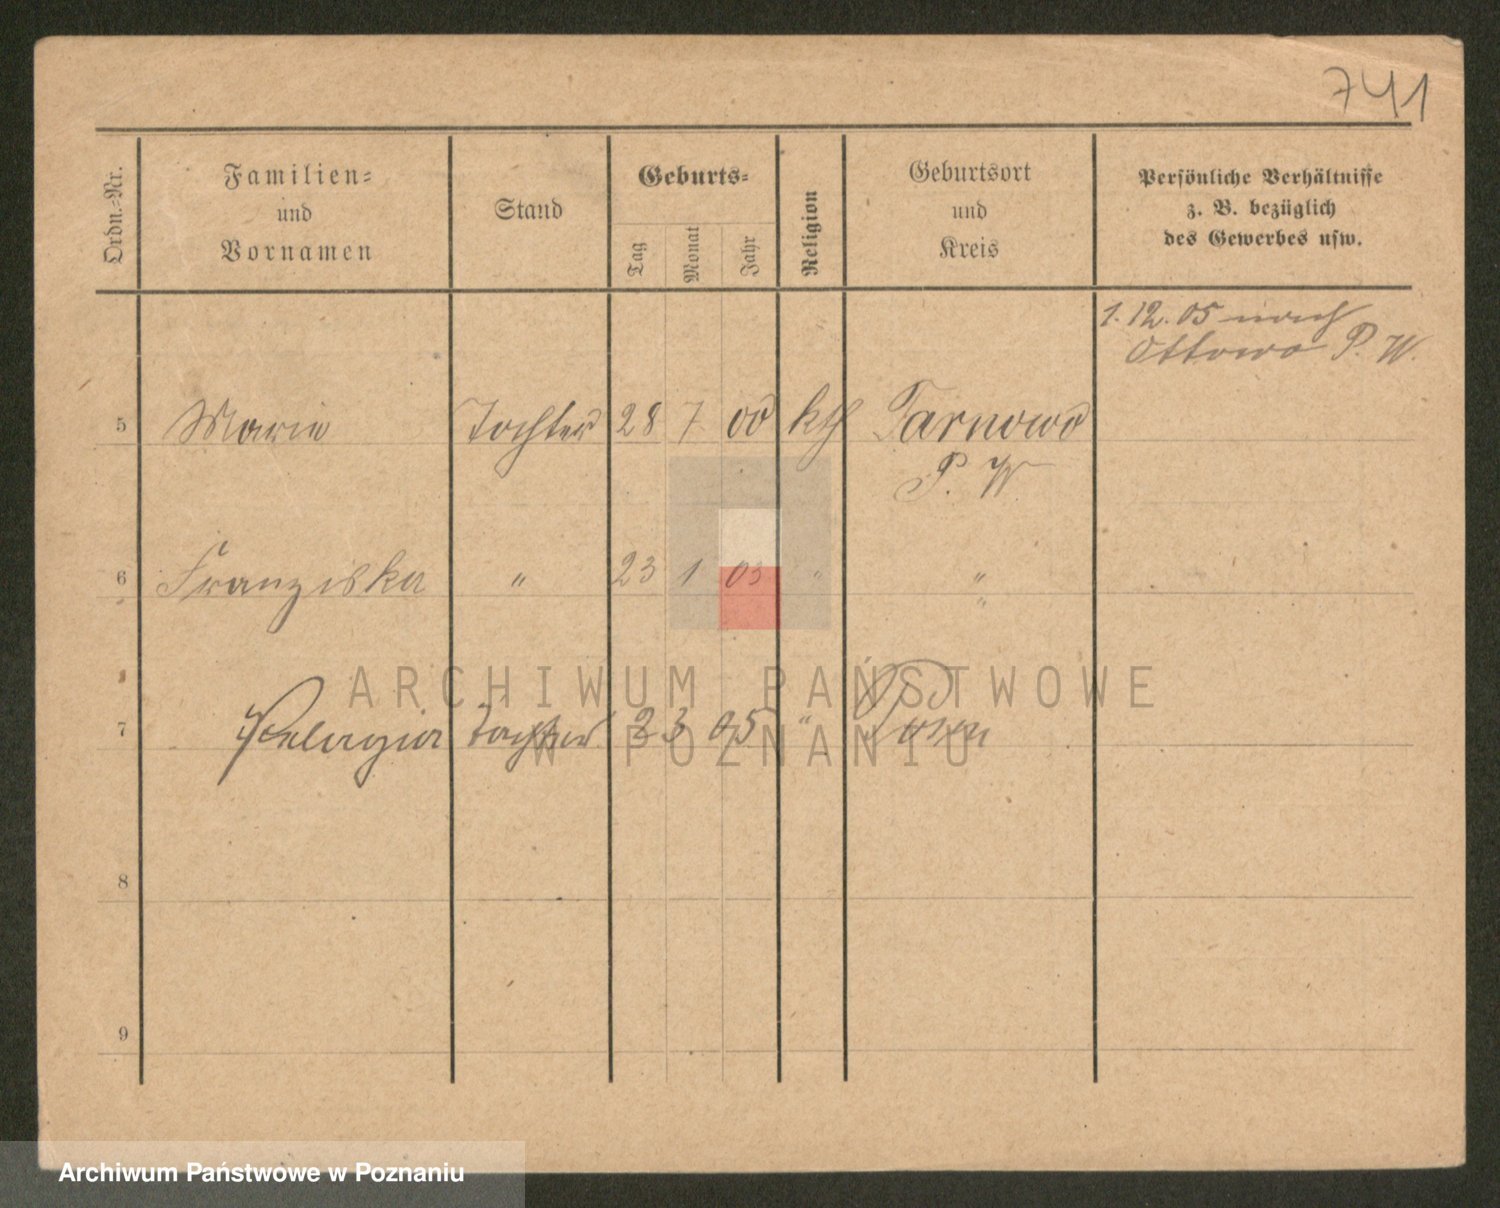 741
Ordn.-Nr.
Familien-
und
Vornamen
Stand
Geburts-
Tag
Monat
Jahr
Religion
Geburtsort
und
Kreis
Persönliche Verhältnisse
z. B. bezüglich
des Gewerbes usw.
1. 12. 05 nach
Ottowo P. W.
5 Marie Tochter 28 7 00 kth Tarnowo
P. W
6 Franziska " 23 1 03 " "
"
ARCHIWUM PAŃSTWOWE
7 Pelagia Tochter 2 3 05 " Posen
W POZNANIU
8
9
Archiwum Państwowe w Poznaniu